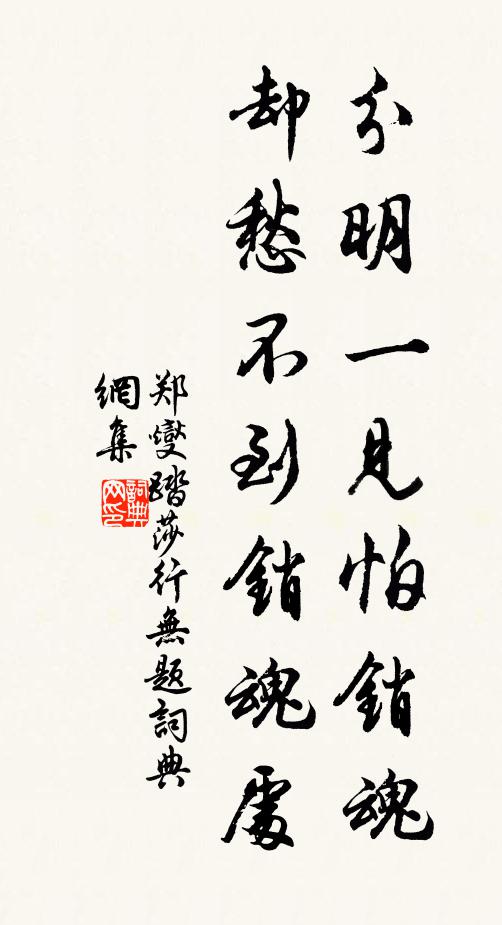 分明一見怕銷魂
却愁不到銷魂處
郑燮踏莎行無題詞典
網集
詞典
网印